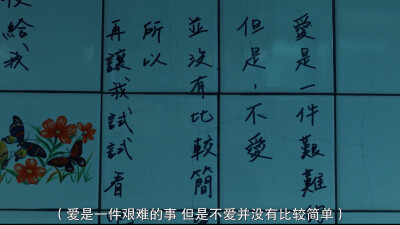 愛是一件艱難
但是，不愛
並沒有比較簡
所以
再讓我試試看
給我
（爱是一件艰难的事 但是不爱并没有比较简单）